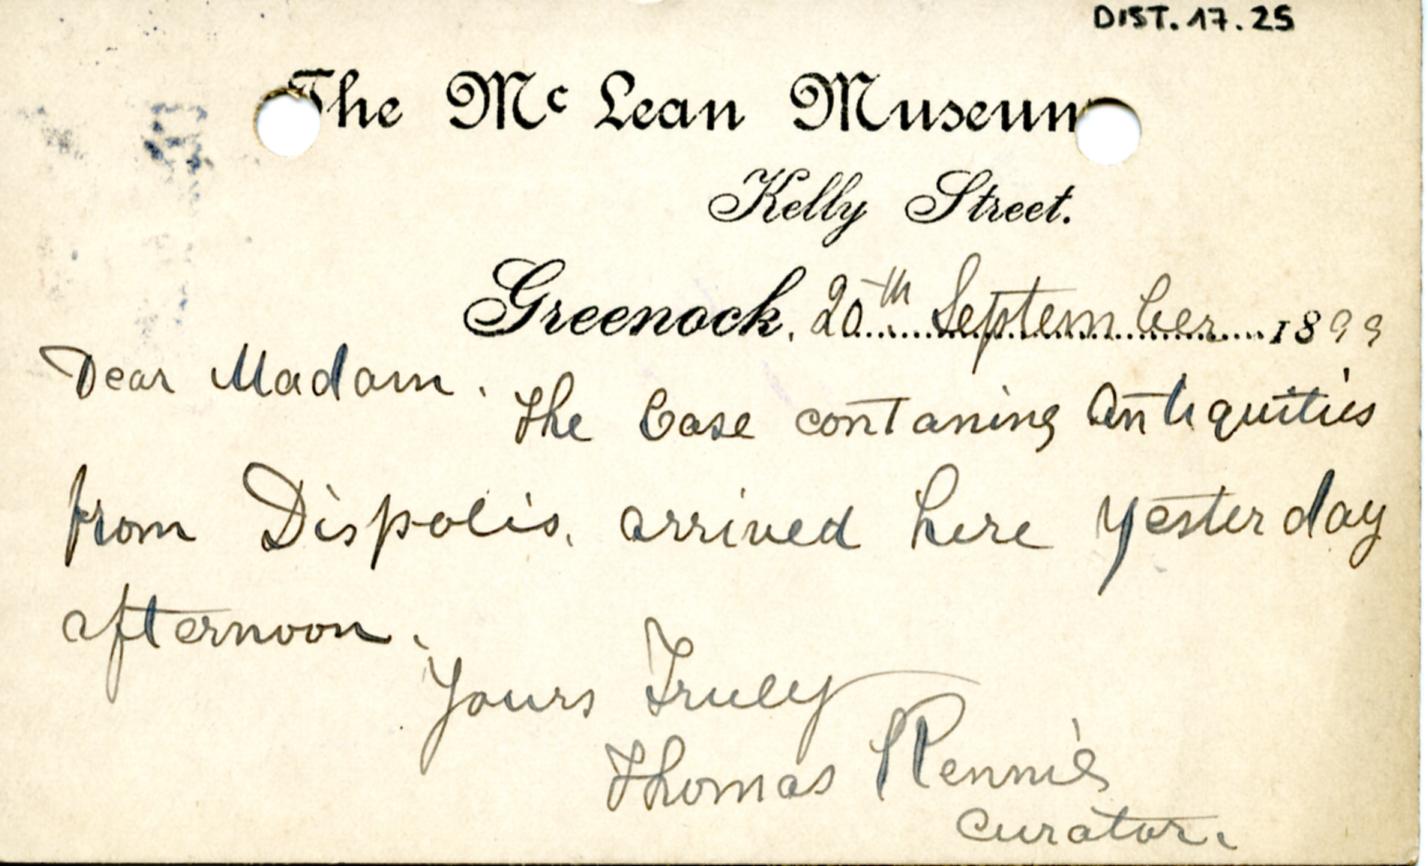 DIST.17.25
The Mc Lean Museum
Kelly Street.
Greenock, 20th September 1899
Dear Madam.
The Case contaning Antiquities
from Dispolis, arrived here yesterday
afternoon.
Yours Truly
Thomas Rennie
Curator.